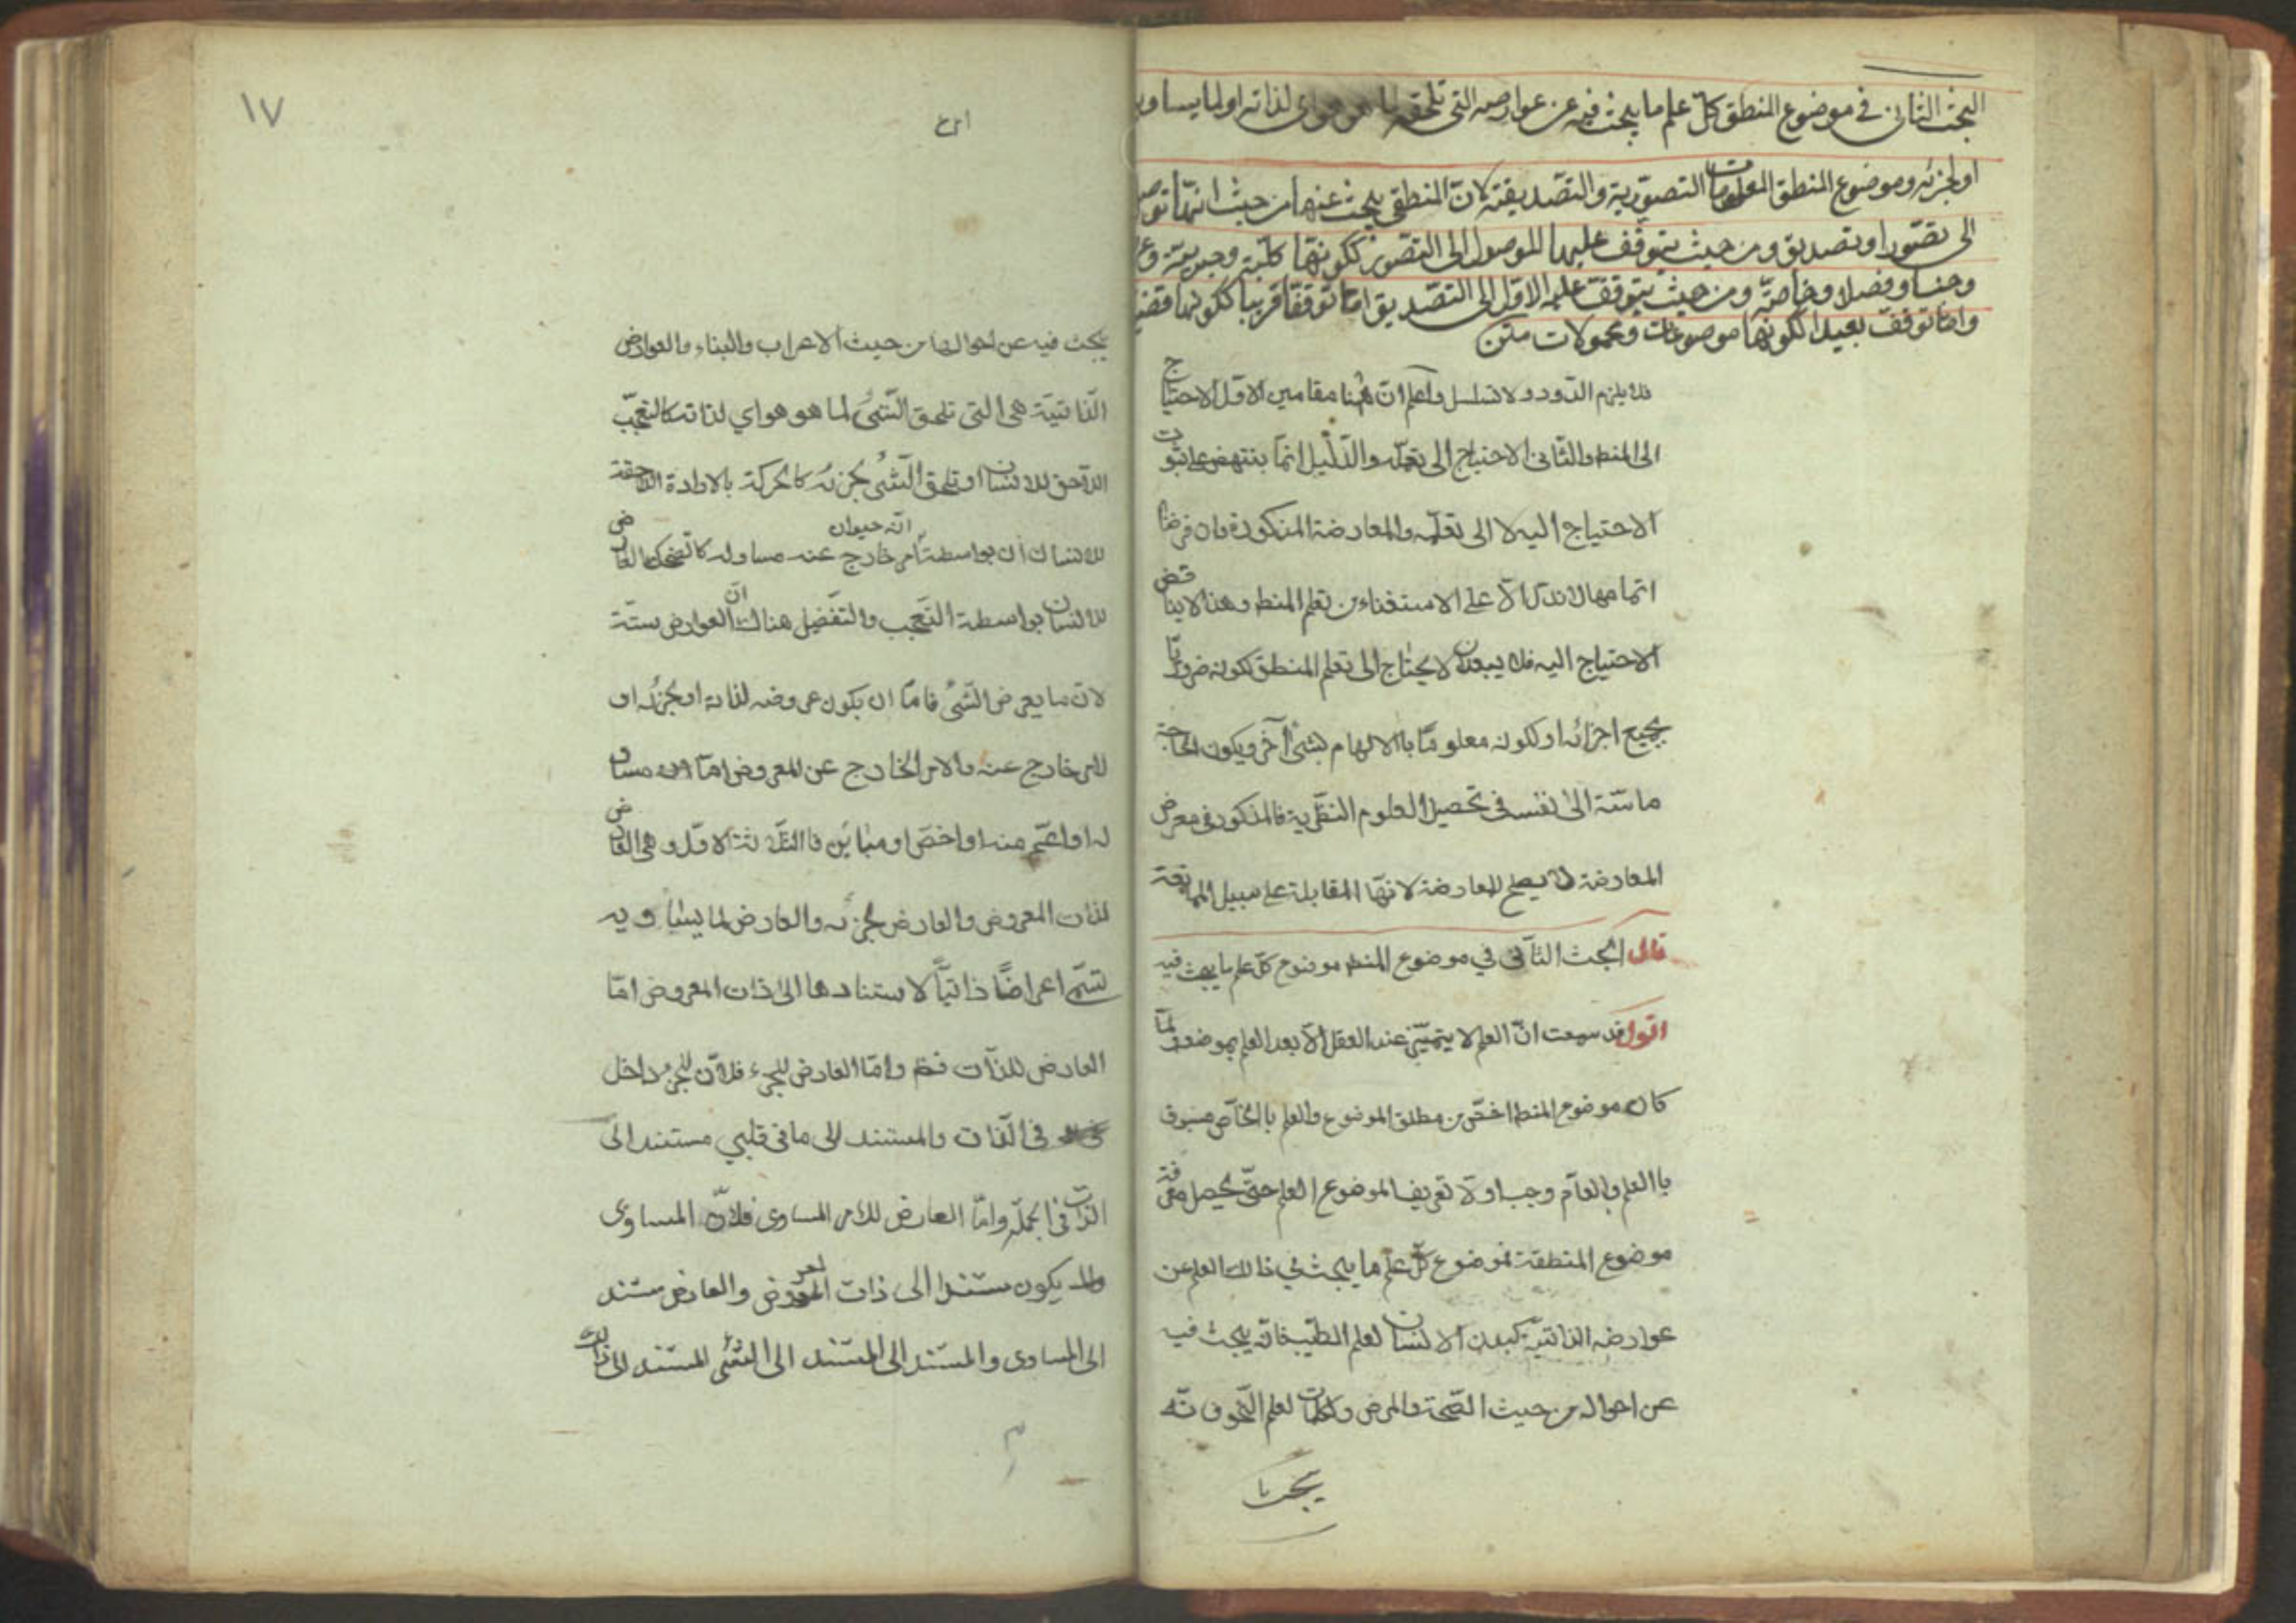 البحث الثانى فى موضوع المنطق كلّ علم ما يبحث فيه عن عوارضه التى تلحقه لما هو هو اى لذاته او لما يساويه
او لجزئه وموضوع المنطق المعلومات التصوّرية والتصديقيّة لانّ المنطقى يبحث عنها من حيث انّها توصل
الى تصوّر او تصديق ومن حيث يتوقف عليها الموصل الى التصوّر ككونها كليّة وجزئيّة
وجنسا وفصلا وخاصّة ومن حيث يتوقف عليه الاوّل الى التصديق امّا توقفا قريبا ككونها قضيّة
وامّا توقف بعيدا ككونها موضوعات ومحمولات متن
فلا يلزم الدّور ولا تسلسل واعلم انّ ههنا مقامين الاوّل الاحتياج
الى المنط والثّانى الاحتياج الى تعلّمه والدّليل انّما ينتهض على ثبوت
الاحتياج اليه لا الى تعلّمه والمعارضة المذكورة وان فرضنا
اتمامها لا تدلّ الّا على الاستغناء من تعلم المنط وهذا لا يناقض
الاحتياج اليه فلا يبعد ان لا يحتاج الى تعلم المنطق لكونه ضروريّا
بجميع اجزائه او لكونه معلومًا باالالهام بشئ آخر ويكون الحاجة
ماسّة الى نفسه فى تحصيل العلوم النظريّة فالمذكور فى معرض
المعارضة لا يصلح للمعارضة لانّها المقابلة على سبيل الممانعة
قال البحث الثانى في موضوع المنط موضوع كلّ علم ما يبحث فيه
اقول قد سمعت انّ العلم لا يتميّز عند العقل الّا بعد العلم بموضوعه لمّا
كان موضوع المنط اخصّ من مطلق الموضوع والعلم باالخاصّ مسبوق
باالعلم باالعآم وجب اولا تعريف الموضوع العلم حتّى يحصل معرفة
موضوع المنطق فموضوع كلّ علم ما يبحث في ذالك العلم عن
عوارضه الذاتيّة كبدن الانسان لعلم الطّب فانّه يبحث فيه
عن احواله من حيث الصّحّة والمرض وكالكلمات لعلم النّحو فانّه
يبحث
١٧
يبحث فيه عن احوالها من حيث الاعراب والبناء والعوارض
الذّاتيّة هى التى تلحق الشّئ لما هو هو اي لذاته كالتعجّب
اللاّحق للانسان او تلحق الشّئ لجزئه كالحركة بالارادة اللاحقة
للانسان انّه حيوان او بواسطة امر خارج عنه مساو له كالضحك العارض
للانسان بواسطة التعجب والتفصيل هناك انّ العوارض ستّة
لانّ ما يعرض الشّئ فامّا ان يكون عروضه لذاته او لجزئه او
لامر خارج عنه والامر الخارج عن المعروض امّا مساو
له او اعمّ منه او اخصّ او مباين فاالثّلاثة الاوّل وهى العارض
لذات المعروض والعارض لجزئه والعارض لما يساويه
تسمّى اعراضًا ذاتيّاً لاستنادها الى ذات المعروض امّا
العارض للذّات فظ وامّا العارض للجزء فلانّ الجزء داخل
فى الذّات والمستند الى ما فى قلبي مستند الى
الذّات فى الجملة وامّا العارض للامر المساوى فلانّ المساوى
يكون مستندا الى ذات المعروض والعارض مستند
الى المساوى والمستند الى المستند الى الشّئ المستند الى ذالك